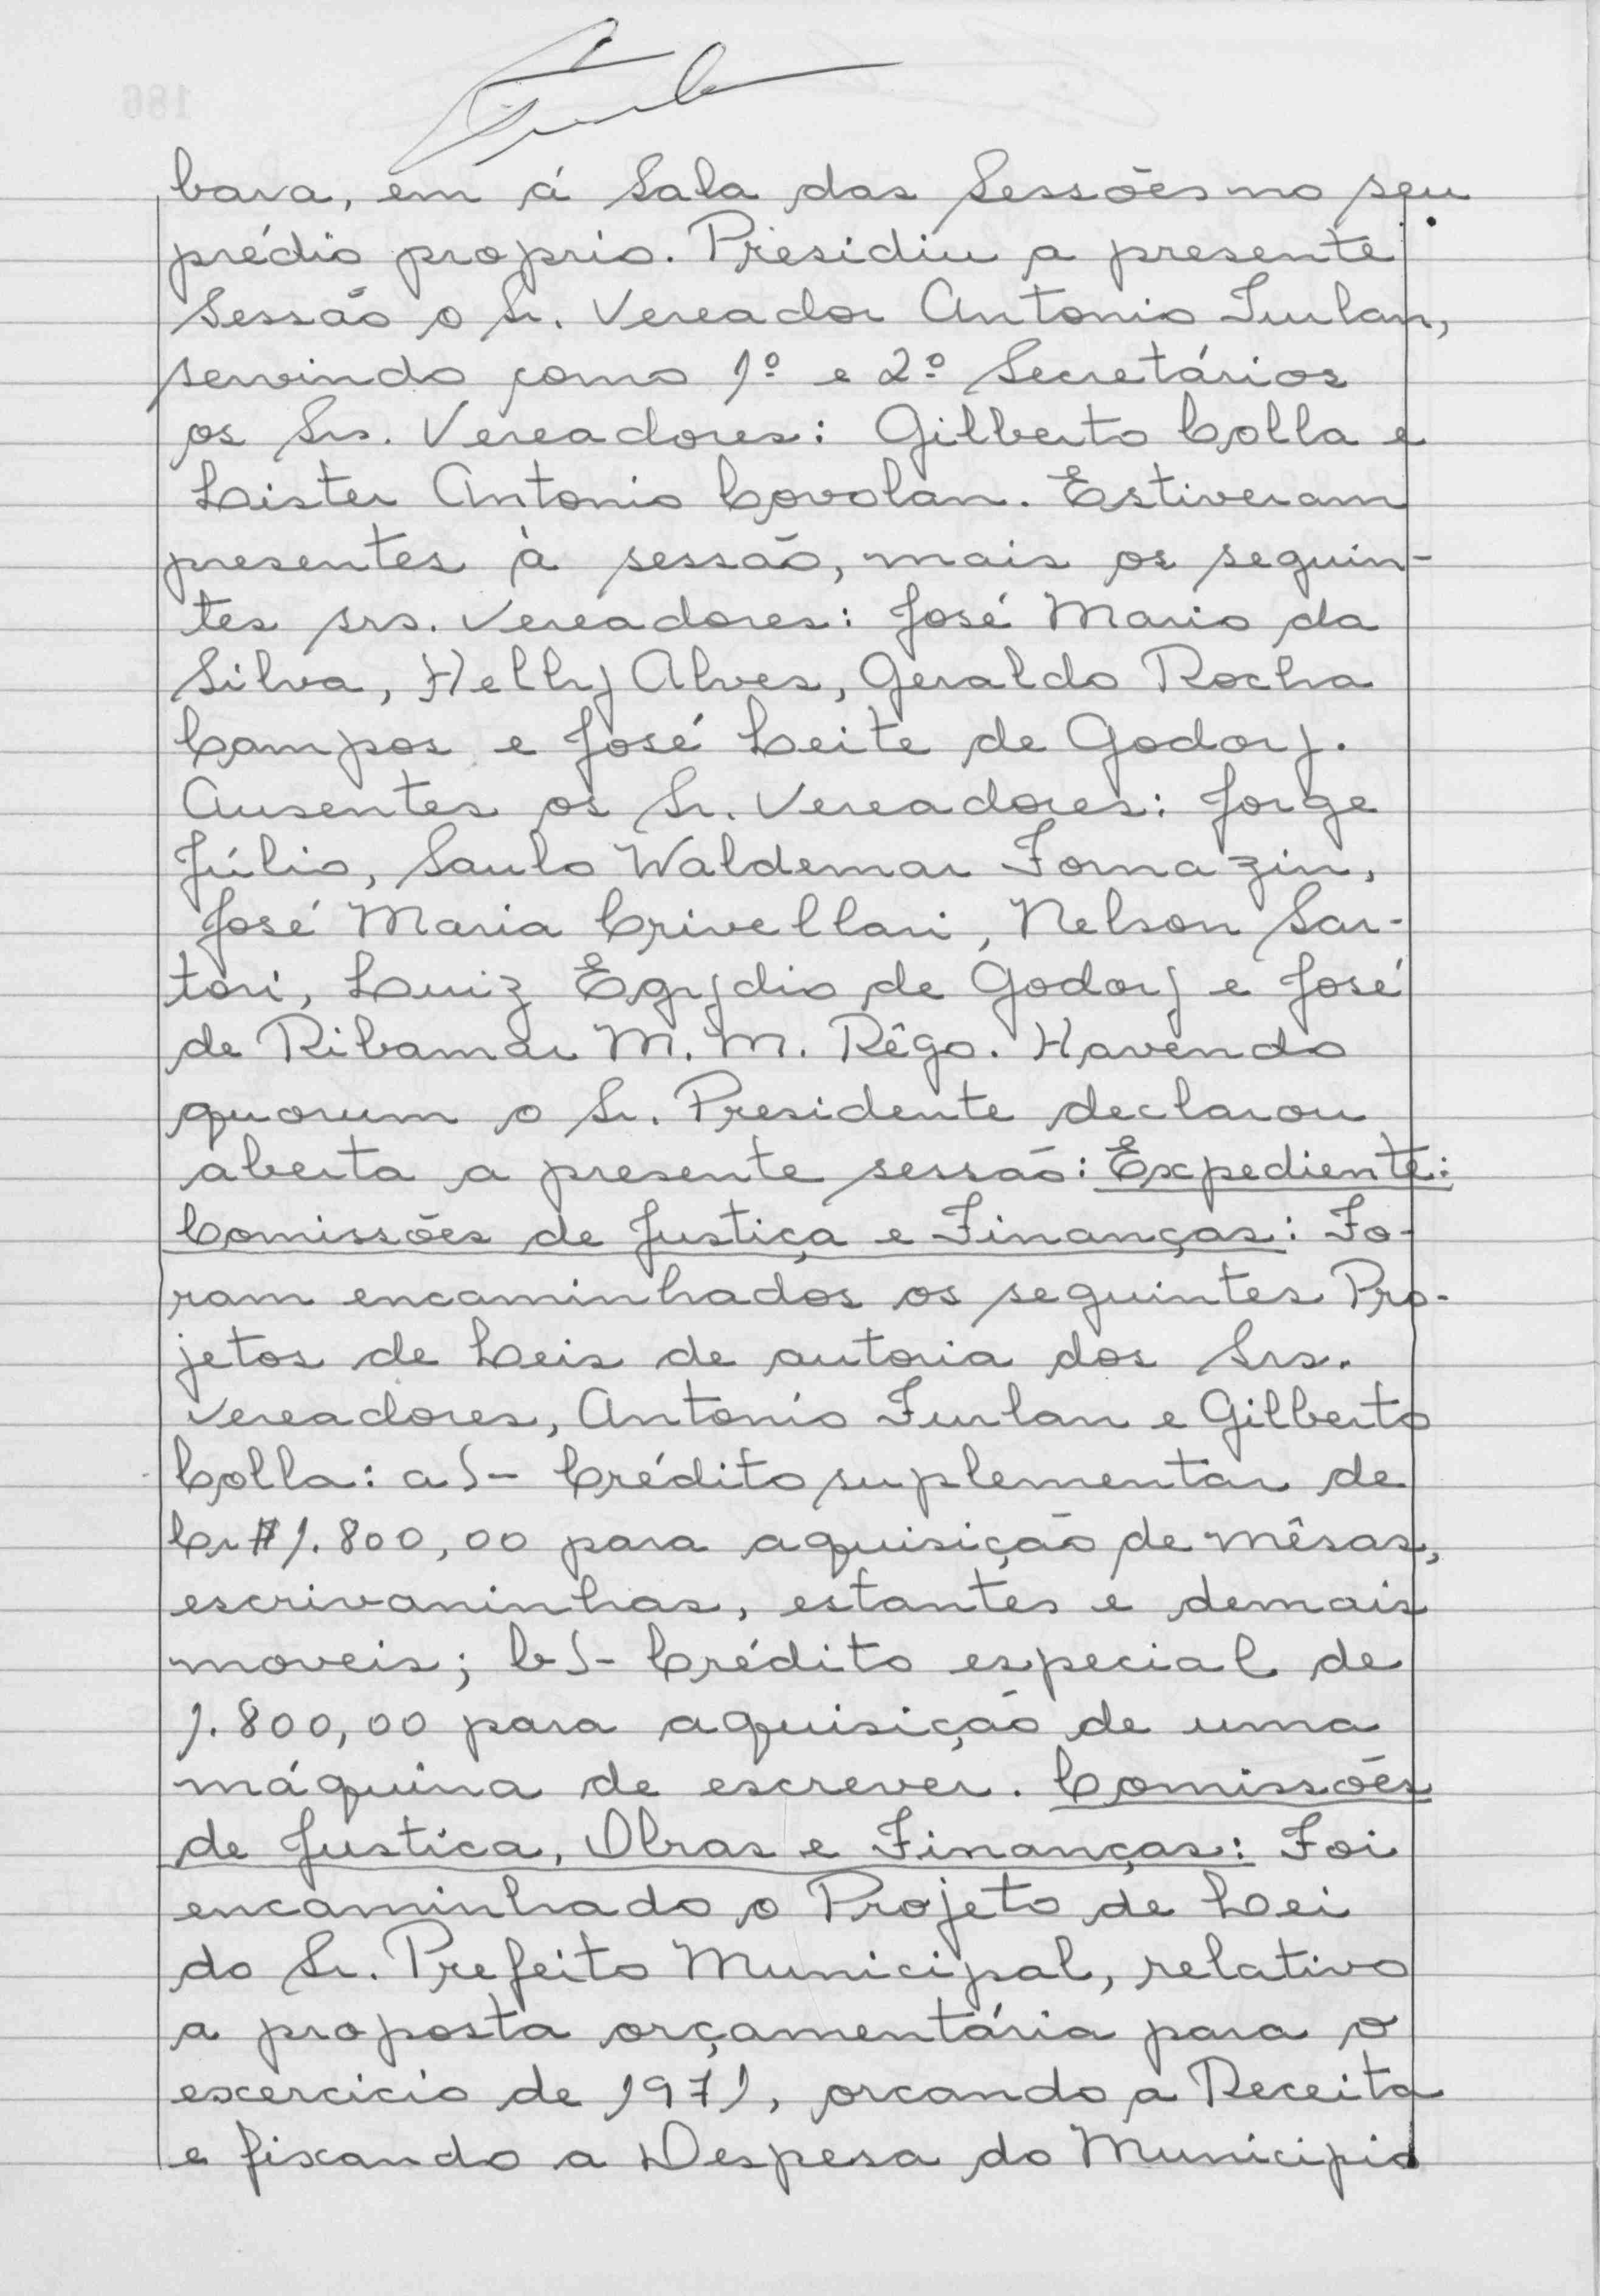 bara, em á Sala das Sessões no seu
prédio proprio. Presidiu a presente
Sessão o Sr. Vereador Antonio Furlan,
servindo como 1º e 2º Secretários
os Srs. Vereadores: Gilberto Colla e
Lister Antonio Covolan. Estiveram
presentes à sessão, mais os seguin-
tes srs. Vereadores: José Mario da
Silva, Helly Alves, Geraldo Rocha
Campos e José Leite de Godoy.
Ausentes os Sr. Vereadores: Jorge
Júlio, Saulo Waldemar Fornazin,
José Maria Crivellari, Nelson Sar-
tori, Luiz Egydio de Godoy e José
de Ribamar M. M. Rêgo. Havendo
quorum o Sr. Presidente declarou
aberta a presente sessão: Expediente:
Comissões de Justiça e Finanças: Fo-
ram encaminhados os seguintes Pro-
jetos de Leis de autoria dos Srs.
Vereadores, Antonio Furlan e Gilberto
Colla: a)- Crédito suplementar de
Cr$1.800,00 para aquisição de mêsas,
escrivaninhas, estantes e demais
moveis; b)- Crédito especial de
1.800,00 para aquisição de uma
máquina de escrever. Comissões
de Justica, Obras e Finanças: Foi
encaminhado o Projeto de Lei
do Sr. Prefeito Municipal, relativo
a proposta orçamentária para o
excercicio de 1971, orcando a Receita
e fixando a Despesa do Municipio